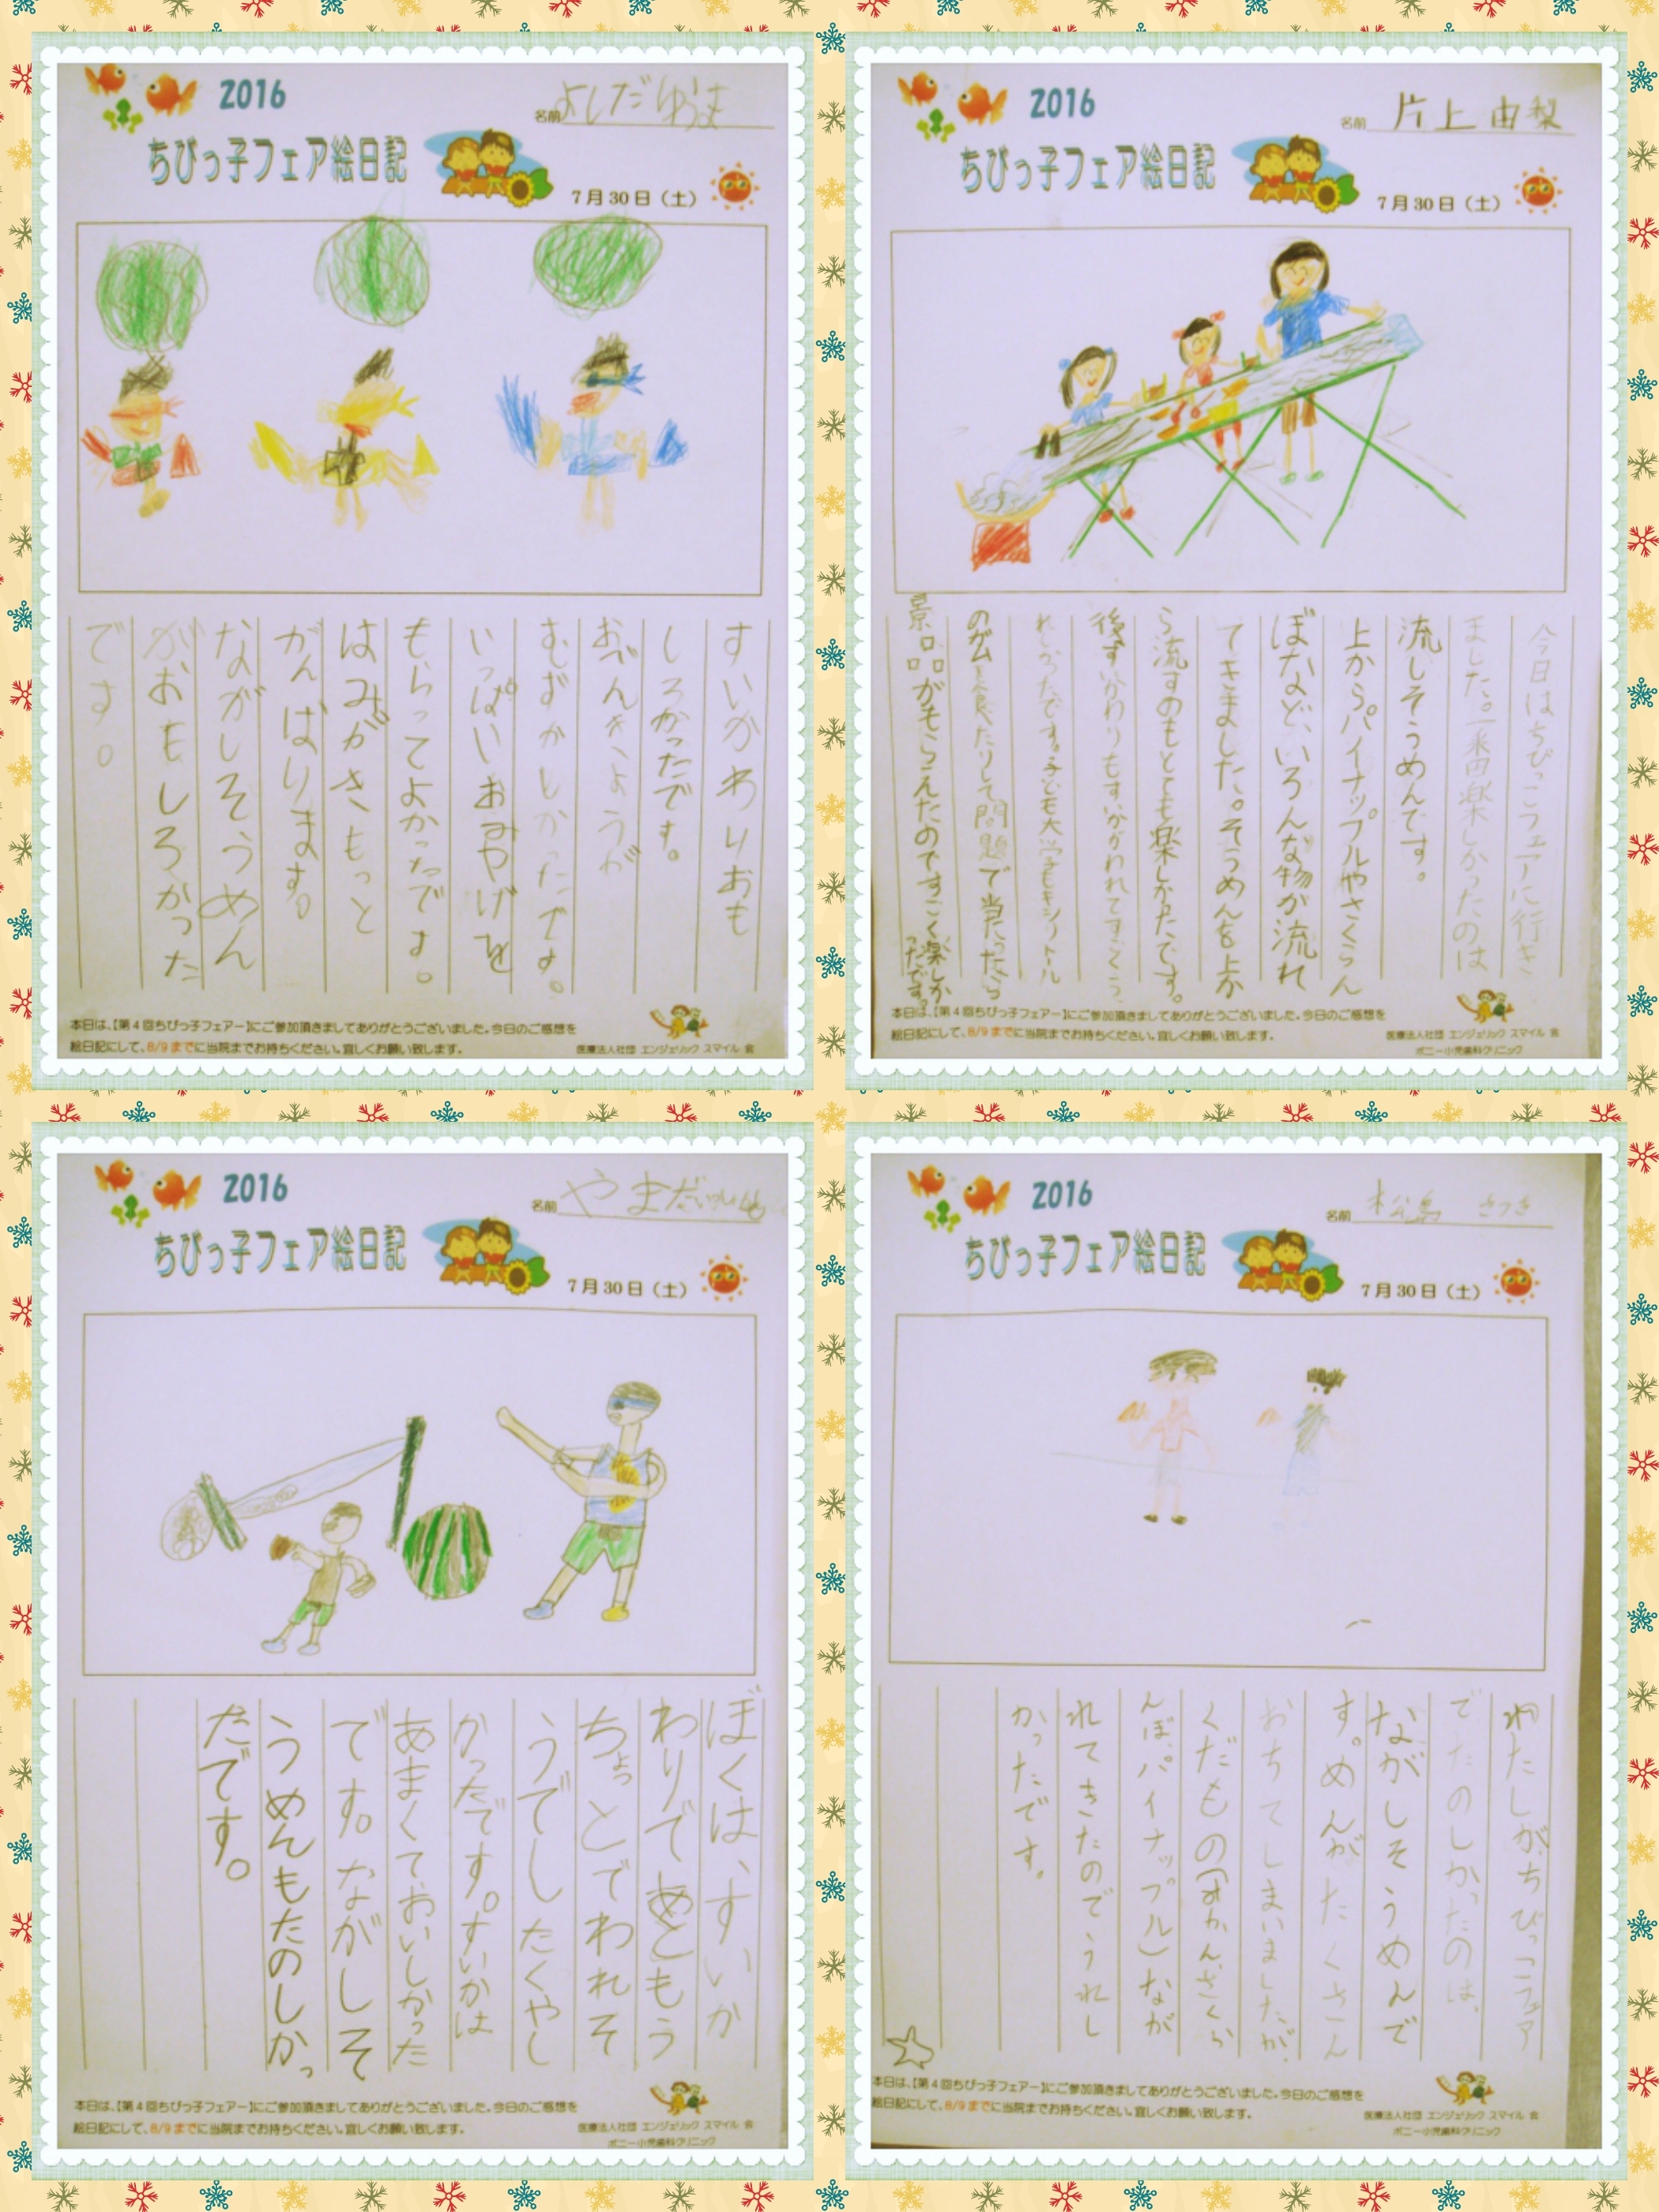 2016
名前 よしだ ゆうま
ちびっ子フェア絵日記
7月30日（土）
すいかわりおも
しろかったです。
おべんきょうが
むずかしかったです。
いっぱいおみやげを
もらってよかったです。
はみがきもっと
がんばります。
ながしそうめん
がおもしろかった
です。
本日は、【第4回ちびっ子フェアー】にご参加頂きましてありがとうございました。今日のご感想を
絵日記にして、8/9までに当院までお持ちください。宜しくお願い致します。
医療法人社団 エンジェリック スマイル 会
2016
名前 片上 由梨
ちびっ子フェア絵日記
7月30日（土）
今日はちびっこフェアに行き
ました。一番楽しかったのは
流しそうめんです。
上からパイナップルやさくらん
ぼなど、いろんな物が流れ
てきました。そうめんを上か
ら流すのもとても楽しかたです。
後すいかわりもすいかがわれてすごくう
れしかったです。子ども大学でもキシリトール
のガム食べたりして問題で当たったら
景品がもらえたのですごく楽しか
ったです。
本日は、【第4回ちびっ子フェアー】にご参加頂きましてありがとうございました。今日のご感想を
絵日記にして、8/9までに当院までお持ちください。宜しくお願い致します。
医療法人社団 エンジェリック スマイル 会
ポニー小児歯科クリニック
2016
名前 やまだ
ちびっ子フェア絵日記
7月30日（土）
ぼくは、すいか
わりであともう
ちょっとでわれそ
うでしたくやし
かったです。すいかは
あまくておいしかった
です。ながしそ
うめんもたのしかっ
たです。
本日は、【第4回ちびっ子フェアー】にご参加頂きましてありがとうございました。今日のご感想を
絵日記にして、8/9までに当院までお持ちください。宜しくお願い致します。
医療法人社団 エンジェリック スマイル 会
ポニー小児歯科クリニック
2016
名前 松島 さつき
ちびっ子フェア絵日記
7月30日（土）
わたしが、ちびっこフェア
でたのしかったのは、
ながしそうめんで
す。めんがたくさん
おちてしまいましたが、
くだもの(みかん、さくら
んぼ、パイナップル)なが
れてきたのでうれし
かったです。
本日は、【第4回ちびっ子フェアー】にご参加頂きましてありがとうございました。今日のご感想を
絵日記にして、8/9までに当院までお持ちください。宜しくお願い致します。
医療法人社団 エンジェリック スマイル 会
ポニー小児歯科クリニック